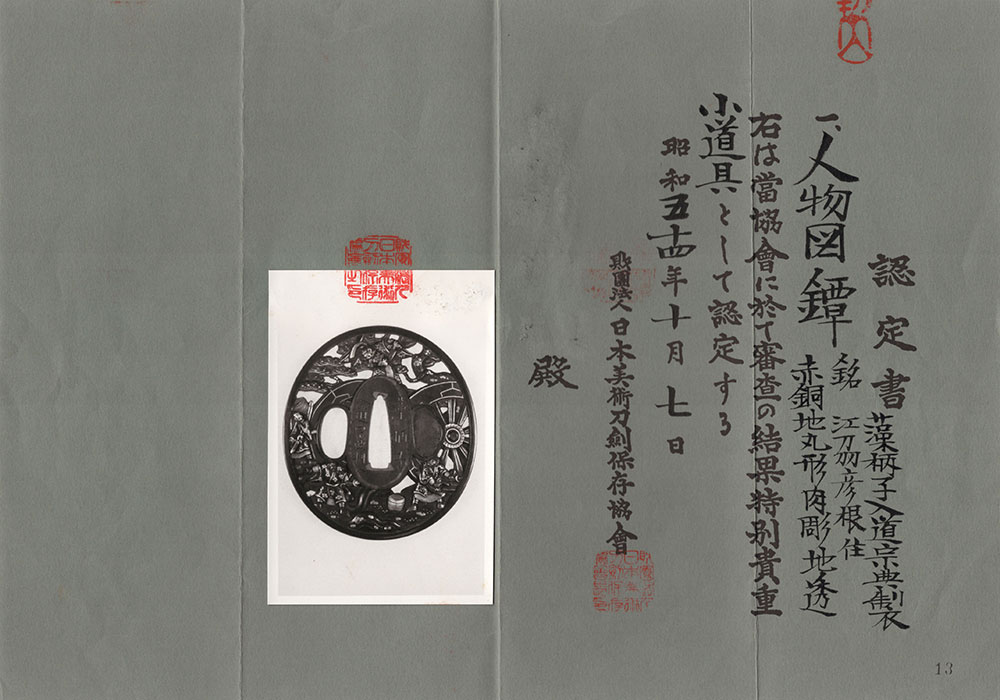 認定書
一、人物図鐔
銘
藻柄子入道宗典製
江刕彦根住
赤銅地丸形肉彫地透
右は當協會に於て審査の結果特別貴重
小道具として認定する
昭和五十四年十月七日
財團法人日本美術刀劍保存協會
殿
13